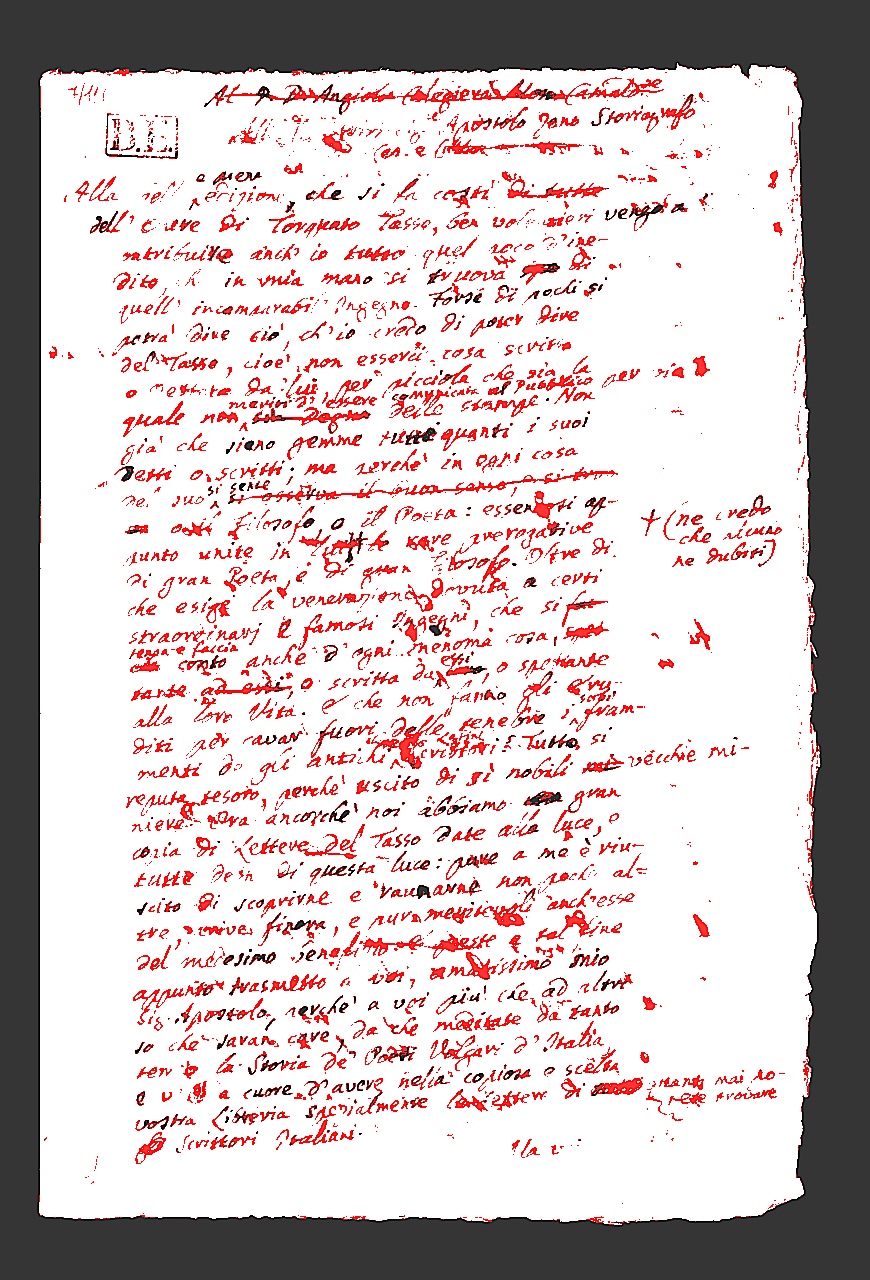 Al P. D. Angiolo Calogierà Mon. Camaldo.se
Apostolo Zeno Storiografo
Ces. e
B.E.
e piena
Alla edizione, che si fa costì di tutte
dell' Opere di Torquato Tasso, ben volentieri vengo a
contribuire anch' io tutto quel poco d'ine-
dito, ch' in mia mano si truova di
quell' incomparabil Ingegno. Forse di pochi si
potrà dire ciò, ch'io credo di poter dire
del Tasso, cioè non esserci cosa scritta
o dettata da lui, per picciola che sia, la
meriti d'essere comunicata al Pubblico per via
quale non sia degna delle stampe. Non
già che sieno gemme tutte quanti i suoi
detti o scritti; ma perchè in ogni cosa
si sente
del suo si osserva il buon senso, e si tro
o il Filosofo, o il Poeta: essendosi ap-
punto unite in lui le rare prerogative
† (ne credo
che alcuno
ne dubiti)
di gran Poeta, e di gran Filosofo. Oltre di
che esige la venerazione dovuta a certi
straordinarj e famosi Ingegni, che si fac
tenga e faccia
conto anche d'ogni menoma cosa,
essi
ad essi, o scritta da, o spettante
alla loro Vita. E che non fanno gli Eru-
scosi
diti per cavar fuori delle tenebre i fram-
menti de gli antichi Scrittori? Tutto si
reputa tesoro, perchè uscito di sì nobili vecchie mi-
niere. Ora ancorchè noi abbiamo gran
copia di Lettere del Tasso date alla luce, e
tutte degne di questa luce: pure a me è riu-
scito di scoprirne e raunarne non poche al=
tre, finora, e pur meritevoli anch'esse
del medesimo benefizio. e queste a tal fine
appunto trasmetto a voi, amatissimo mio
Sig. Apostolo, perchè a voi più che ad altri
so che saran care, da che meditate da tanto
tempo la Storia de' Poeti Volgari d'Italia,
e v' è a cuore d'avere nella copiosa e scelta
vostra Libreria specialmente le Lettere di quanti mai po-
tete trovare
Scrittori Italiani.